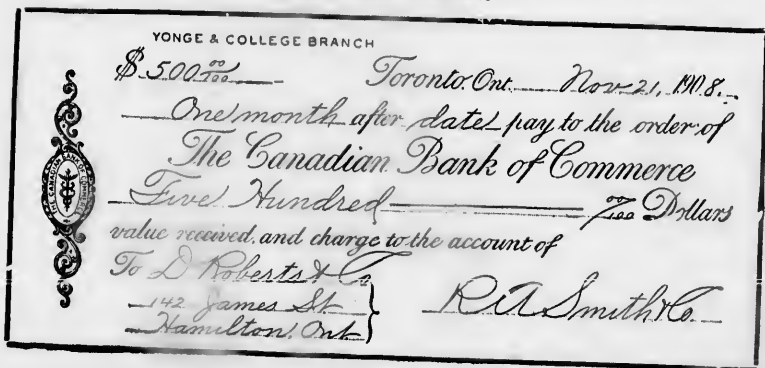 YONGE & COLLEGE BRANCH
$ 500 00/100 Toronto, Ont. Nov 21, 1908.
One month after date pay to the order of
The Canadian Bank of Commerce
Five Hundred 00/100 Dollars
value received, and charge to the account of
To D Roberts & Co
142 James St
Hamilton, Ont
R A Smith & Co.
THE CANADIAN BANK OF COMMERCE